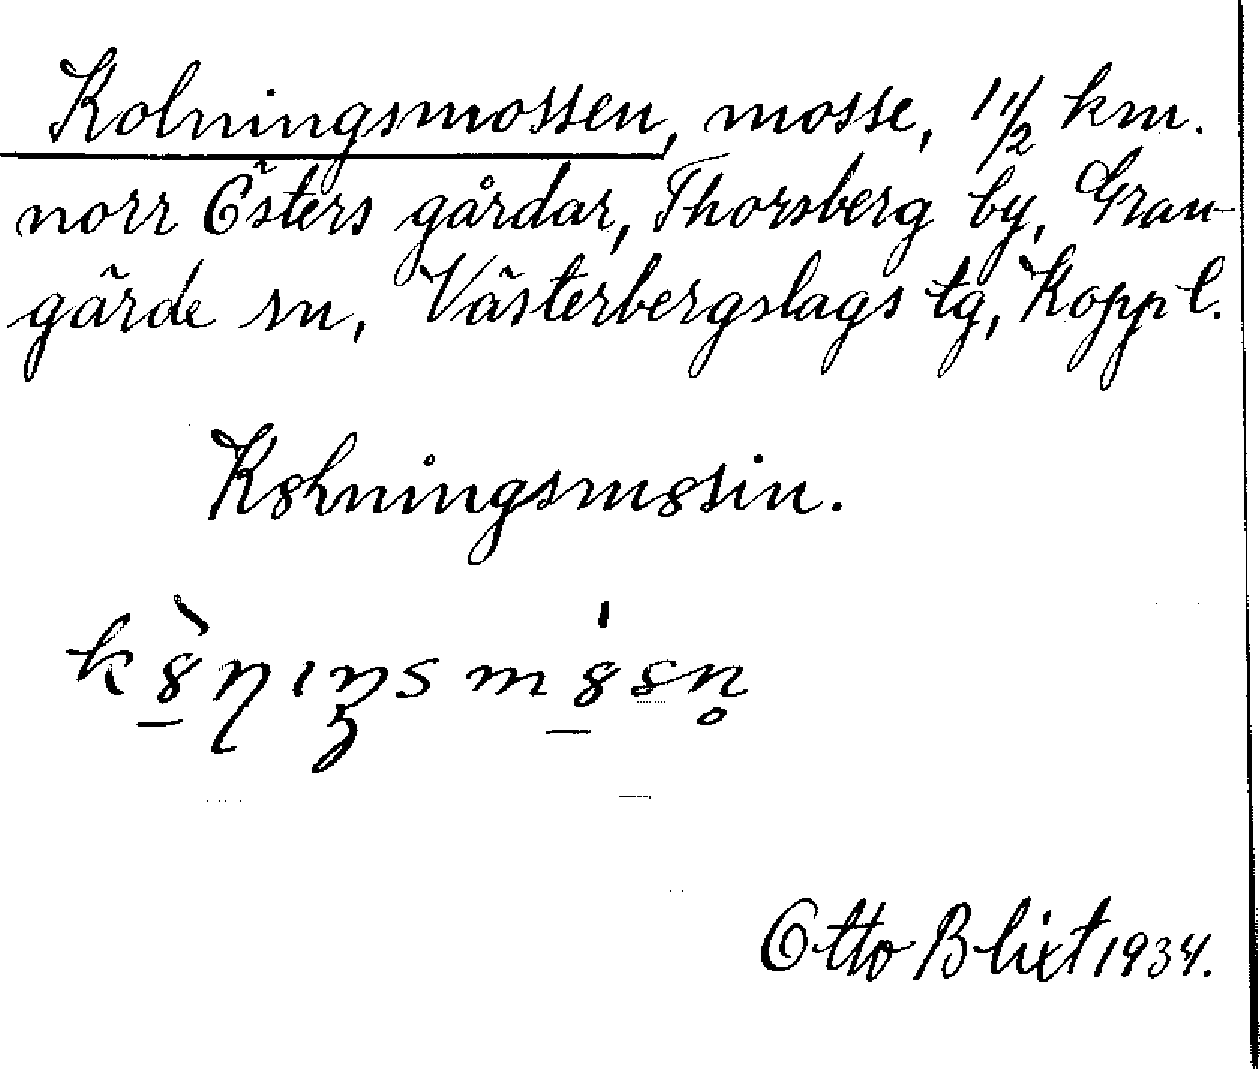 Kolningsmossen, mosse, 1 1/2 km.
norr Östers gårdar, Thorsberg by, Gran-
gärde sn, Västerbergslags tg, Kopp l.
K8hningsm8sin.
Otto Blixt 1934.